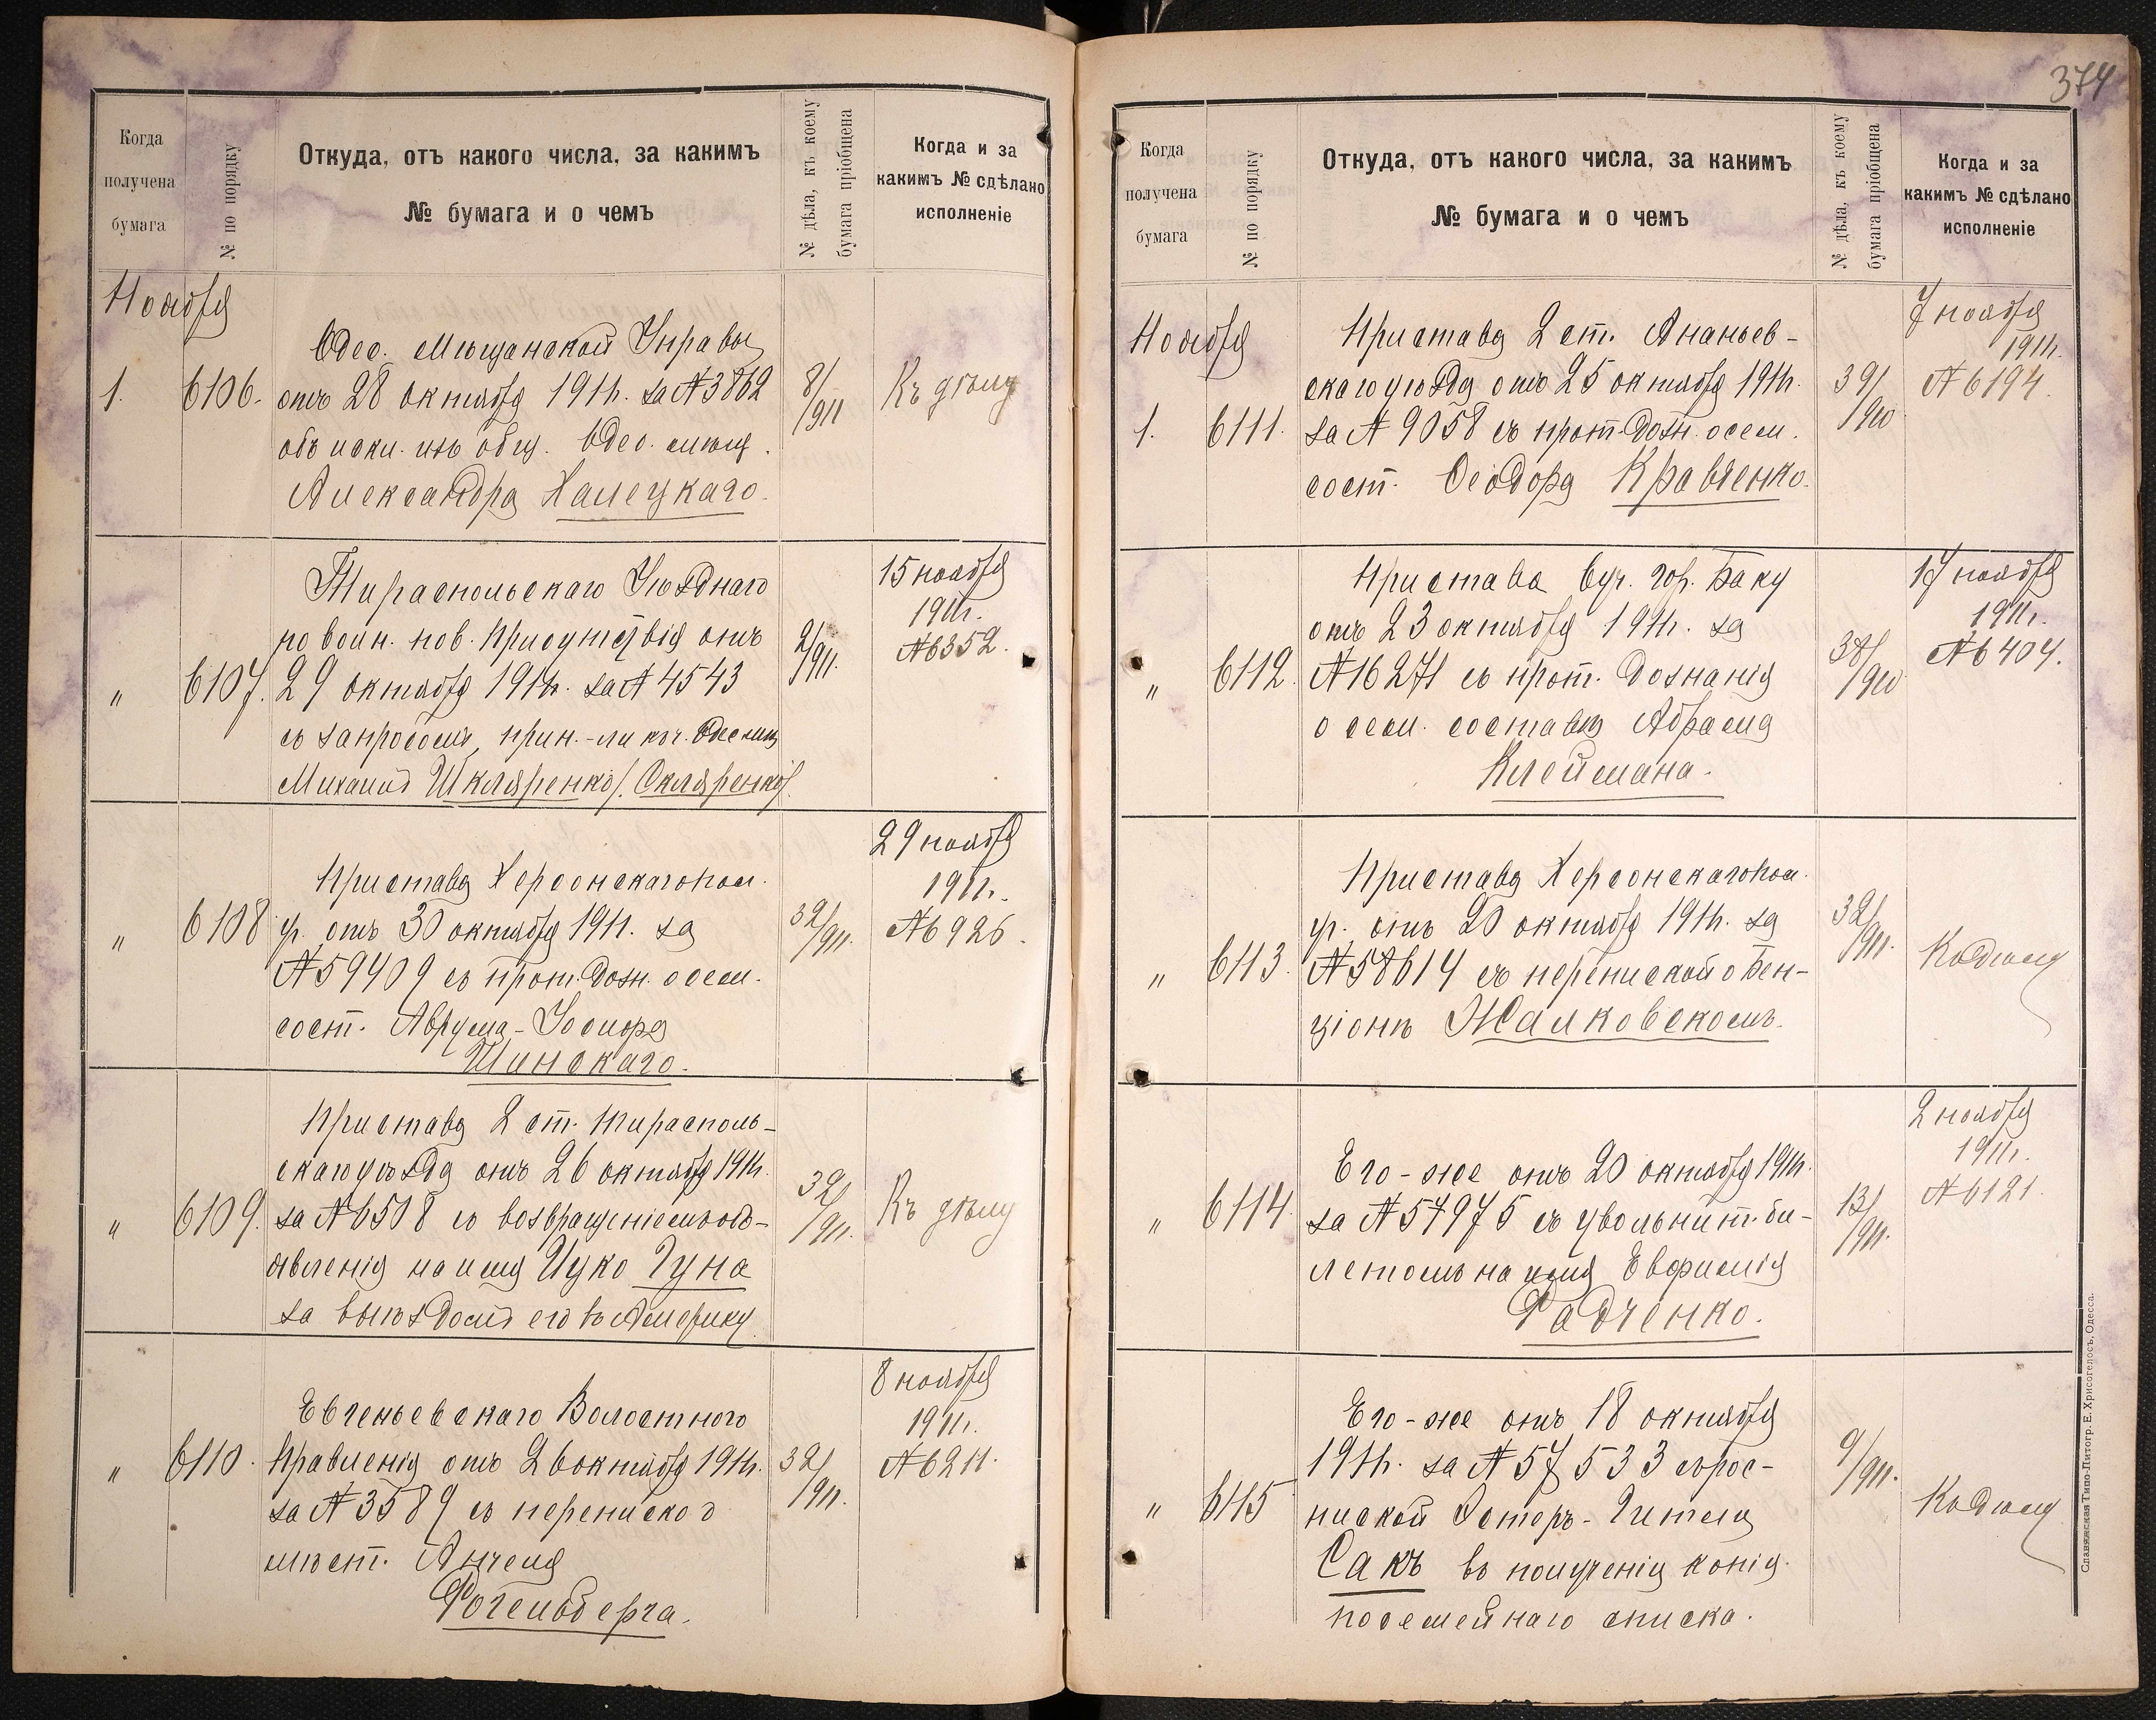 374
Когда
получена
бумага
№ по порядку
Откуда, отъ какого числа, за какимъ
№ бумага и о чемъ
№ дѣла, къ коему
бумага пріобщена
Когда и за
какимъ № сдѣлано
исполненіе
Ноября
1.
6106.
Одес. Мѣщанской Управы
отъ 28 октября 1911г. за № 3862
объ искл. изъ общ. Одес. мѣщ.
Александра Халецкаго.
8/911
Къ дѣлу
"
6107.
Тираспольскаго Уѣзднаго
по воин. пов. Присутствія отъ
29 октября 1911г. за № 4543
съ запросомъ, прин.-ли къ Одес. мѣщ
Михаилъ Шкляренко/Скляренко/.
2/911.
15 ноября
1911г.
№ 6352.
"
6108
Пристава Херсонскаго пол.
уч. отъ 30 октября 1911. за
№ 59409 съ прот. дозн. о сем.
сост. Аврума-Іосифа
Шинскаго.
32/911.
29 ноября
1911г.
№ 6926.
"
6109.
Пристава 2 ст. Тирасполь-
скаго уѣзда отъ 26 октября 1911г.
за № 6508 съ возвращеніемъ объ-
явленія на имя Ицко Гуна
за выѣздомъ его въ Америку
32/911.
Къ дѣлу
"
6110.
Евгеньевскаго Волостного
Правленія отъ 26 октября 1911г.
за № 3589 съ перепиской
мѣст. Анчеля
Фогельберга.
32/911.
8 ноября
1911г.
№ 6211.
Когда
получена
бумага
№ по порядку
Откуда, отъ какого числа, за какимъ
№ бумага и о чемъ
№ дѣла, къ коему
бумага пріобщена
Когда и за
какимъ № сдѣлано
исполненіе
Ноября
1.
6111.
Пристава 2 ст. Ананьев-
скаго уѣзда отъ 25 октября 1911г.
за № 9058 съ прот. дозн. о сем.
сост. Ѳеодора Кравченко.
39/910
7 ноября
1911г.
№ 6194.
"
6112.
Пристава 6 уч. гор. Баку
отъ 23 октября 1911г. за
№ 16271 съ прот. дознанія
о сем. составѣ Абрама
Клеймана.
38/910
17 ноября
1911г.
№ 6404.
"
6113.
Пристава Херсонскаго пол.
уч. отъ 20 октября 1911г. за
№ 58614 съ перепиской о Бен-
ціонѣ Жалковскомъ.
32/911.
Къ дѣлу
"
6114.
Его-же отъ 20 октября 1911г.
за № 57975 съ увольнит. би-
летомъ на имя Евфимія
Радченко.
13/911.
2 ноября
1911г.
№ 6121.
"
6115
Его-же отъ 18 октября
1911г. за № 57533 съ рос-
пиской Эстеръ-Гители
Сакъ въ полученіи копіи
посемейнаго списка.
9/911.
Къ дѣлу
Славянская Типо-Литогр. Е. Хрисогелосъ, Одесса.